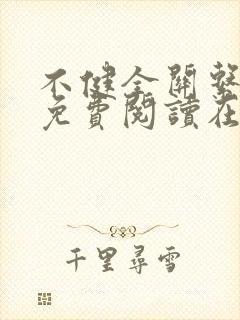 不健全關繫
免費閱讀在
千里尋雪